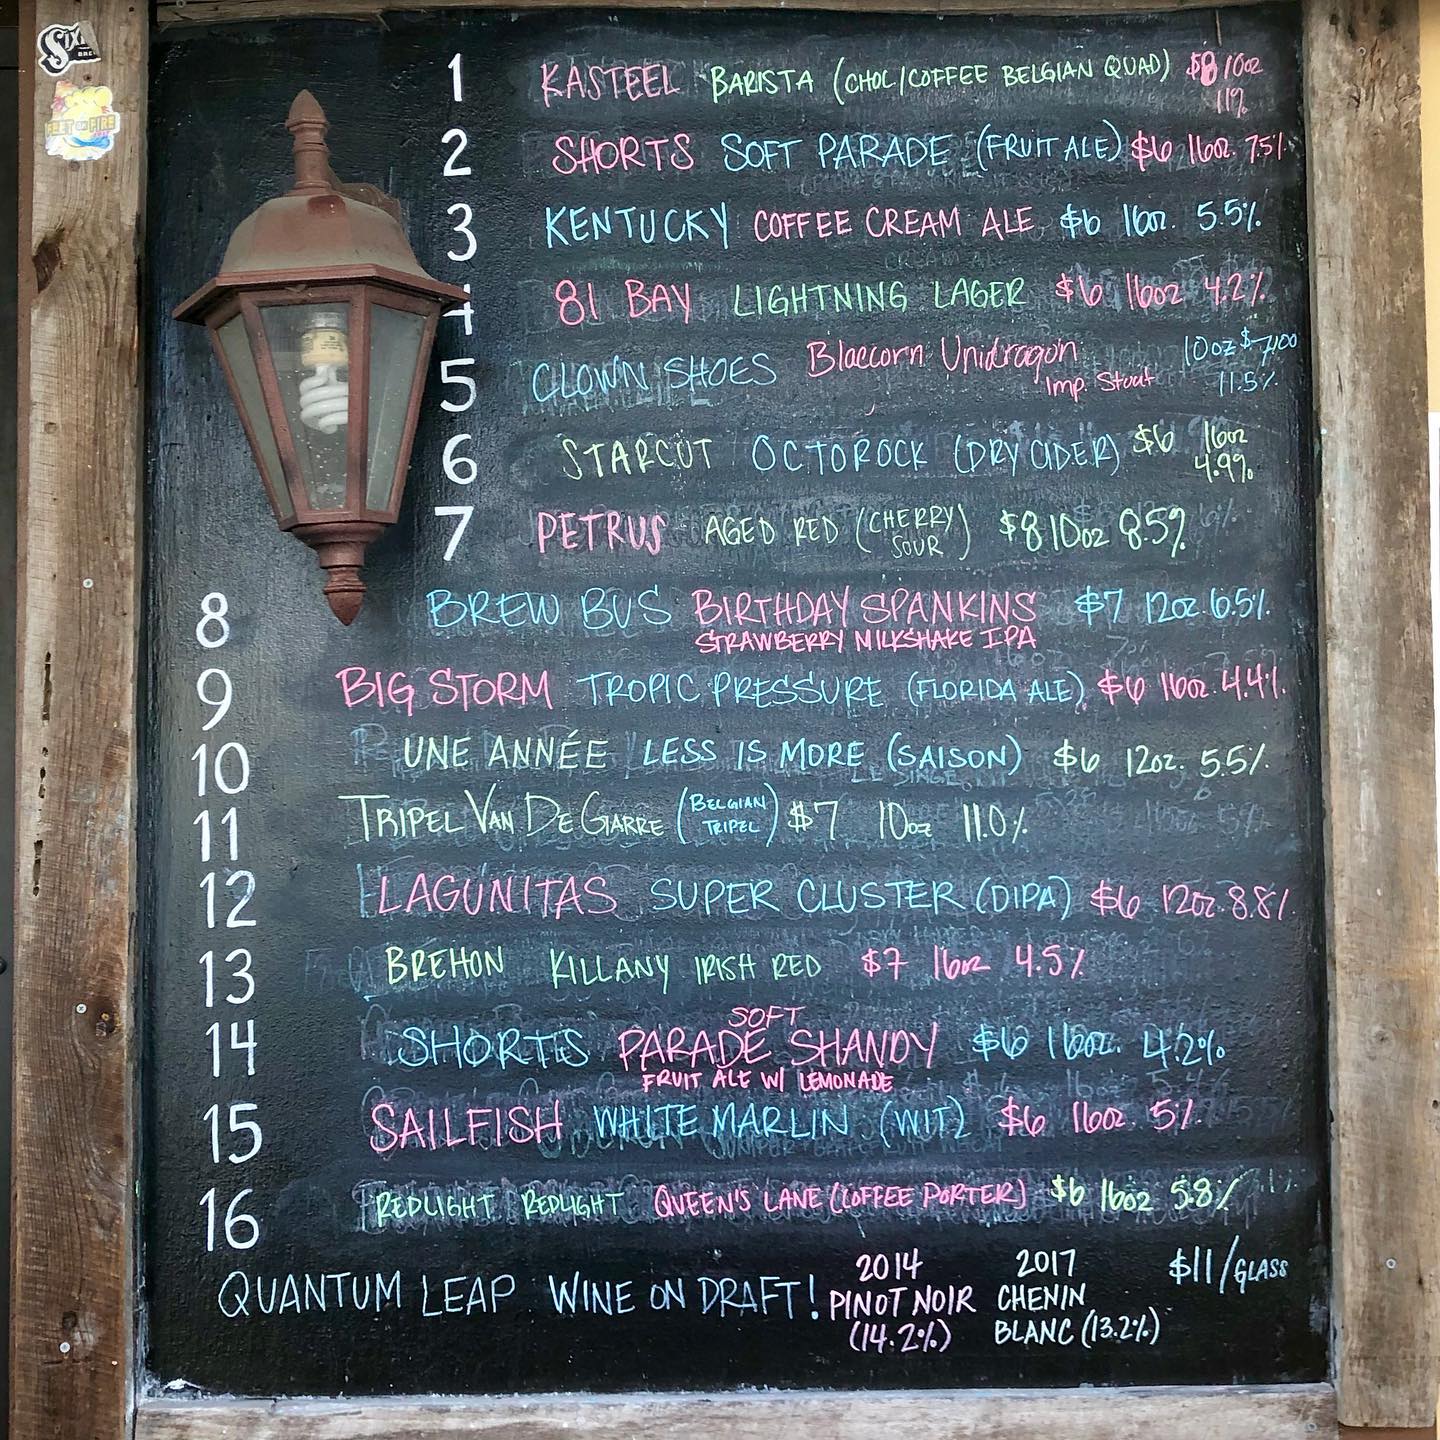 SIX
BRE
FEET ON FIRE
1 KASTEEL BARISTA (CHOL/COFFEE BELGIAN QUAD) $8 10oz
11%
2 SHORTS SOFT PARADE (FRUIT ALE) $6 16oz. 7.5%
3 KENTUCKY COFFEE CREAM ALE $6 16oz. 5.5%
4 81 BAY LIGHTNING LAGER $6 16oz 4.2%
5 CLOWN SHOES Blaecorn Unidragon 10oz $7.00
Imp. Stout 11.5%
6 STARCUT OCTOROCK (DRY CIDER) $6 16oz
4.99%
7 PETRUS AGED RED (CHERRY SOUR) $8 10oz 8.5%
8 BREW BUS BIRTHDAY SPANKINS $7 12oz 6.5%.
STRAWBERRY MILKSHAKE IPA
9 BIG STORM TROPIC PRESSURE (FLORIDA ALE) $6 16oz. 4.4%.
10 UNE ANNÉE LESS IS MORE (SAISON) $6 12oz. 5.5%
11 TRIPEL VAN DE GARRE (BELGIAN TRIPEL) $7 10oz 11.0%
12 LAGUNITAS SUPER CLUSTER (DIPA) $6 12oz. 8.8%.
13 BREHON KILLANY IRISH RED $7 16oz 4.5%
SOFT
14 SHORTS PARADE SHANDY $6 16oz. 4.2%
FRUIT ALE W/ LEMONADE
15 SAILFISH WHITE MARLIN (WIT) $6 16oz. 5%.
16 REDLIGHT REDLIGHT QUEEN'S LANE (COFFEE PORTER) $6 16oz 5.8%
QUANTUM LEAP WINE ON DRAFT! 2014 PINOT NOIR (14.2%) 2017 CHENIN BLANC (13.2%) $11/GLASS